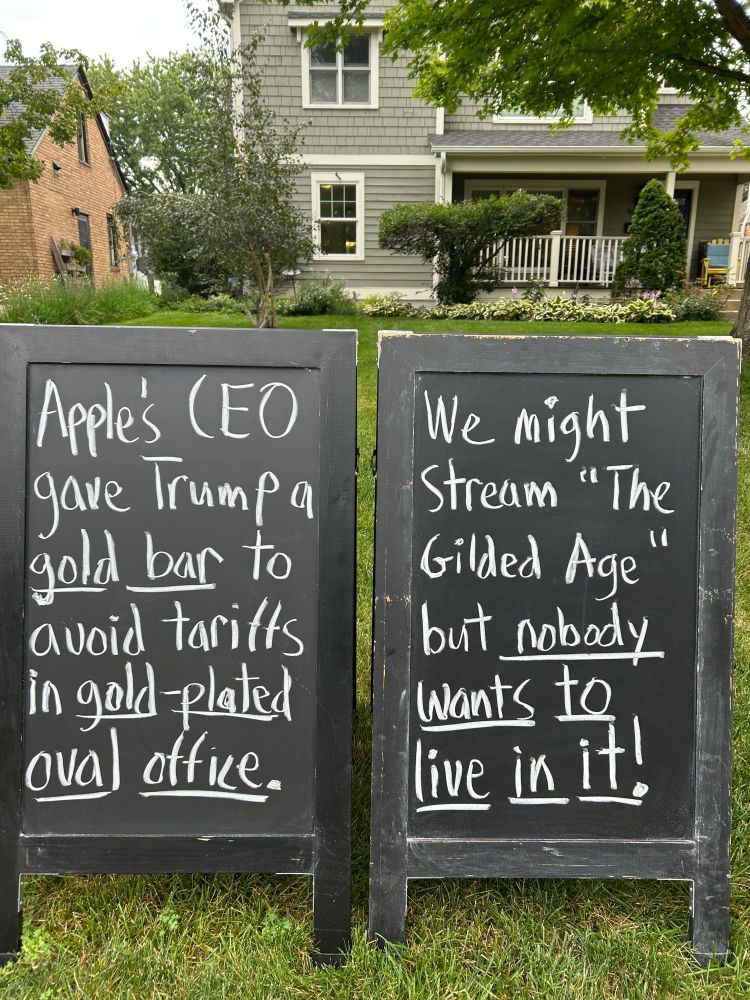 Apple's CEO
gave Trump a
gold bar to
avoid tariffs
in gold-plated
oval office.
We might
Stream "The
Gilded Age"
but nobody
wants to
live in it!